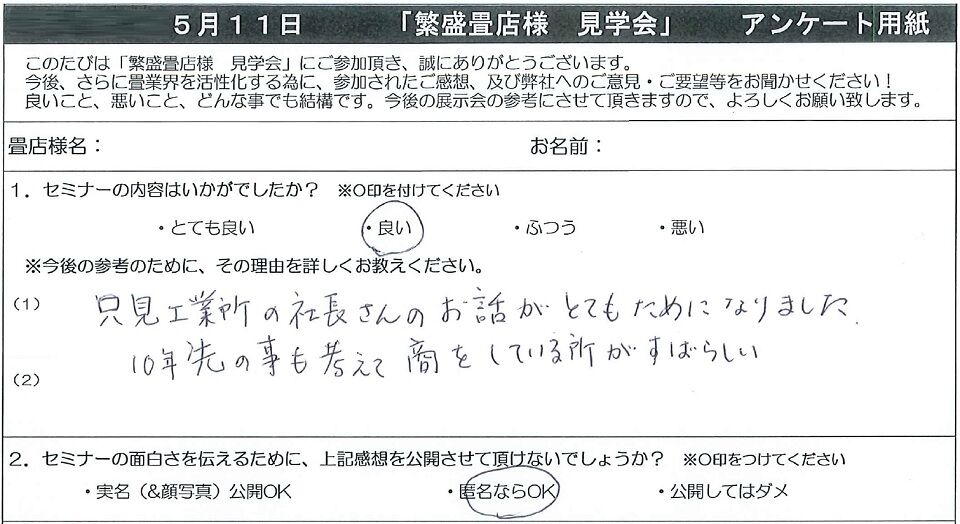 ５月１１日　「繁盛畳店様　見学会」　アンケート用紙
このたびは「繁盛畳店様　見学会」にご参加頂き、誠にありがとうございます。
今後、さらに畳業界を活性化する為に、参加されたご感想、及び弊社へのご意見・ご要望等をお聞かせください！
良いこと、悪いこと、どんな事でも結構です。今後の展示会の参考にさせて頂きますので、よろしくお願い致します。
畳店様名：　お名前：
１．セミナーの内容はいかがでしたか？　※〇印を付けてください
・とても良い　・良い　・ふつう　・悪い
※今後の参考のために、その理由を詳しくお教えください。
(1)　只見工業所の社長さんのお話がとてもためになりました。
10年先の事も考えて商をしている所がすばらしい
(2)
２．セミナーの面白さを伝えるために、上記感想を公開させて頂けないでしょうか？　※〇印をつけてください
・実名（&顔写真）公開OK　・匿名ならOK　・公開してはダメ